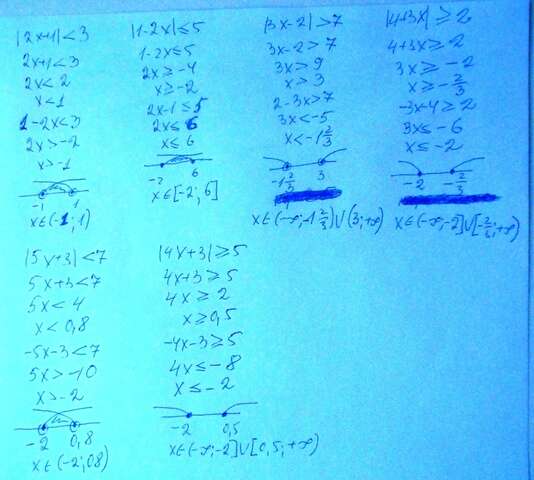 |2x+1|<3
2x+1<3
2x<2
x<1
1-2x<3
2x>-2
x>-1
-1 1
x∈(-1;1)
|1-2x|≤5
1-2x≤5
2x≥-4
x≥-2
2x-1≤5
2x≤6
x≤6
-2 6
x∈[-2;6]
|3x-2|>7
3x-2>7
3x>9
x>3
2-3x>7
3x<-5
x<-1 2/3
-1 2/3 3
x∈(-∞;-1 2/3)∪(3;+∞)
|4+3x|≥2
4+3x≥2
3x≥-2
x≥-2/3
-3x-4≥2
3x≤-6
x≤-2
-2 -2/3
x∈(-∞;-2]∪[-2/3;+∞)
|5x+3|<7
5x+3<7
5x<4
x<0,8
-5x-3<7
5x>-10
x>-2
-2 0,8
x∈(-2;0,8)
|4x+3|≥5
4x+3≥5
4x≥2
x≥0,5
-4x-3≥5
4x≤-8
x≤-2
-2 0,5
x∈(-∞;-2]∪[0,5;+∞)